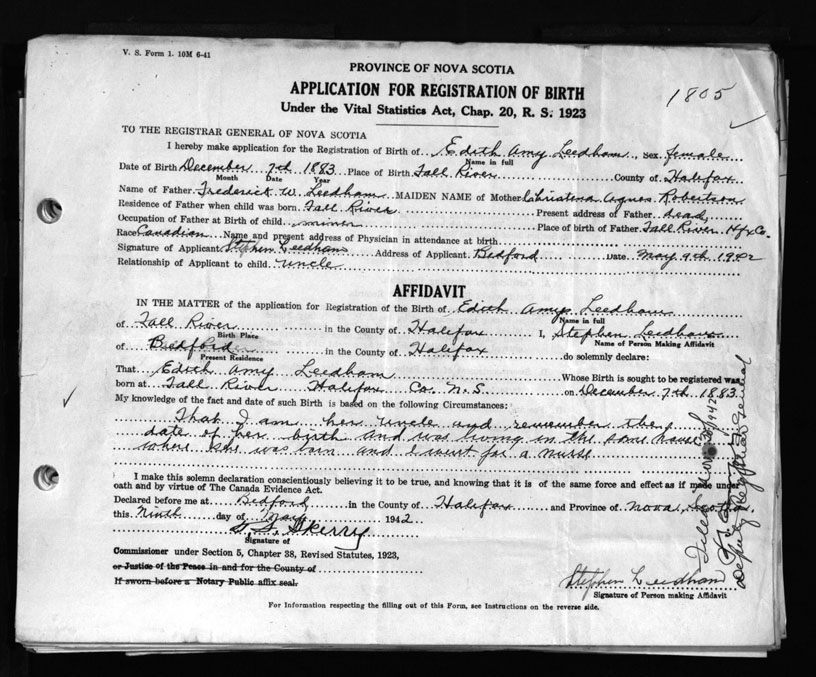 V. S. Form 1. 10M 6-41
PROVINCE OF NOVA SCOTIA
APPLICATION FOR REGISTRATION OF BIRTH
Under the Vital Statistics Act, Chap. 20, R. S. 1923
1805
TO THE REGISTRAR GENERAL OF NOVA SCOTIA
I hereby make application for the Registration of Birth of Edith Amy Leedham, Sex female
Name in full
Date of Birth December 7th 1883 Place of Birth Fall River County of Halifax
Month Date Year
Name of Father Frederick W. Leedham MAIDEN NAME of Mother Christena Agnes Robertson
Residence of Father when child was born Fall River Present address of Father dead,
Occupation of Father at Birth of child miner Place of birth of Father Fall River Hfx Co.
Race Canadian Name and present address of Physician in attendance at birth
Signature of Applicant Stephen Leedham Address of Applicant Bedford Date May 9th 1942
Relationship of Applicant to child uncle
AFFIDAVIT
IN THE MATTER of the application for Registration of the Birth of Edith Amy Leedham
Name in full
of Fall River in the County of Halifax I, Stephen Leedham
Birth Place Name of Person Making Affidavit
of Bedford in the County of Halifax do solemnly declare:
Present Residence
That Edith Amy Leedham Whose Birth is sought to be registered was
born at Fall River Halifax Co. N.S. on December 7th 1883.
My knowledge of the fact and date of such Birth is based on the following Circumstances:
That I am her uncle and remember the
date of her birth and was living in the same house
where she was born and I went for a nurse
I make this solemn declaration conscientiously believing it to be true, and knowing that it is of the same force and effect as if made under
oath and by virtue of The Canada Evidence Act.
Declared before me at Bedford in the County of Halifax and Province of Nova Scotia
this Ninth day of May 1942
Skerry
Signature of
Commissioner under Section 5, Chapter 38, Revised Statutes, 1923,
or Justice of the Peace in and for the County of
If sworn before a Notary Public affix seal.
Stephen Leedham
Signature of Person making Affidavit
For Information respecting the filling out of this Form, see Instructions on the reverse side.
Filed 1942
Deputy Registrar General